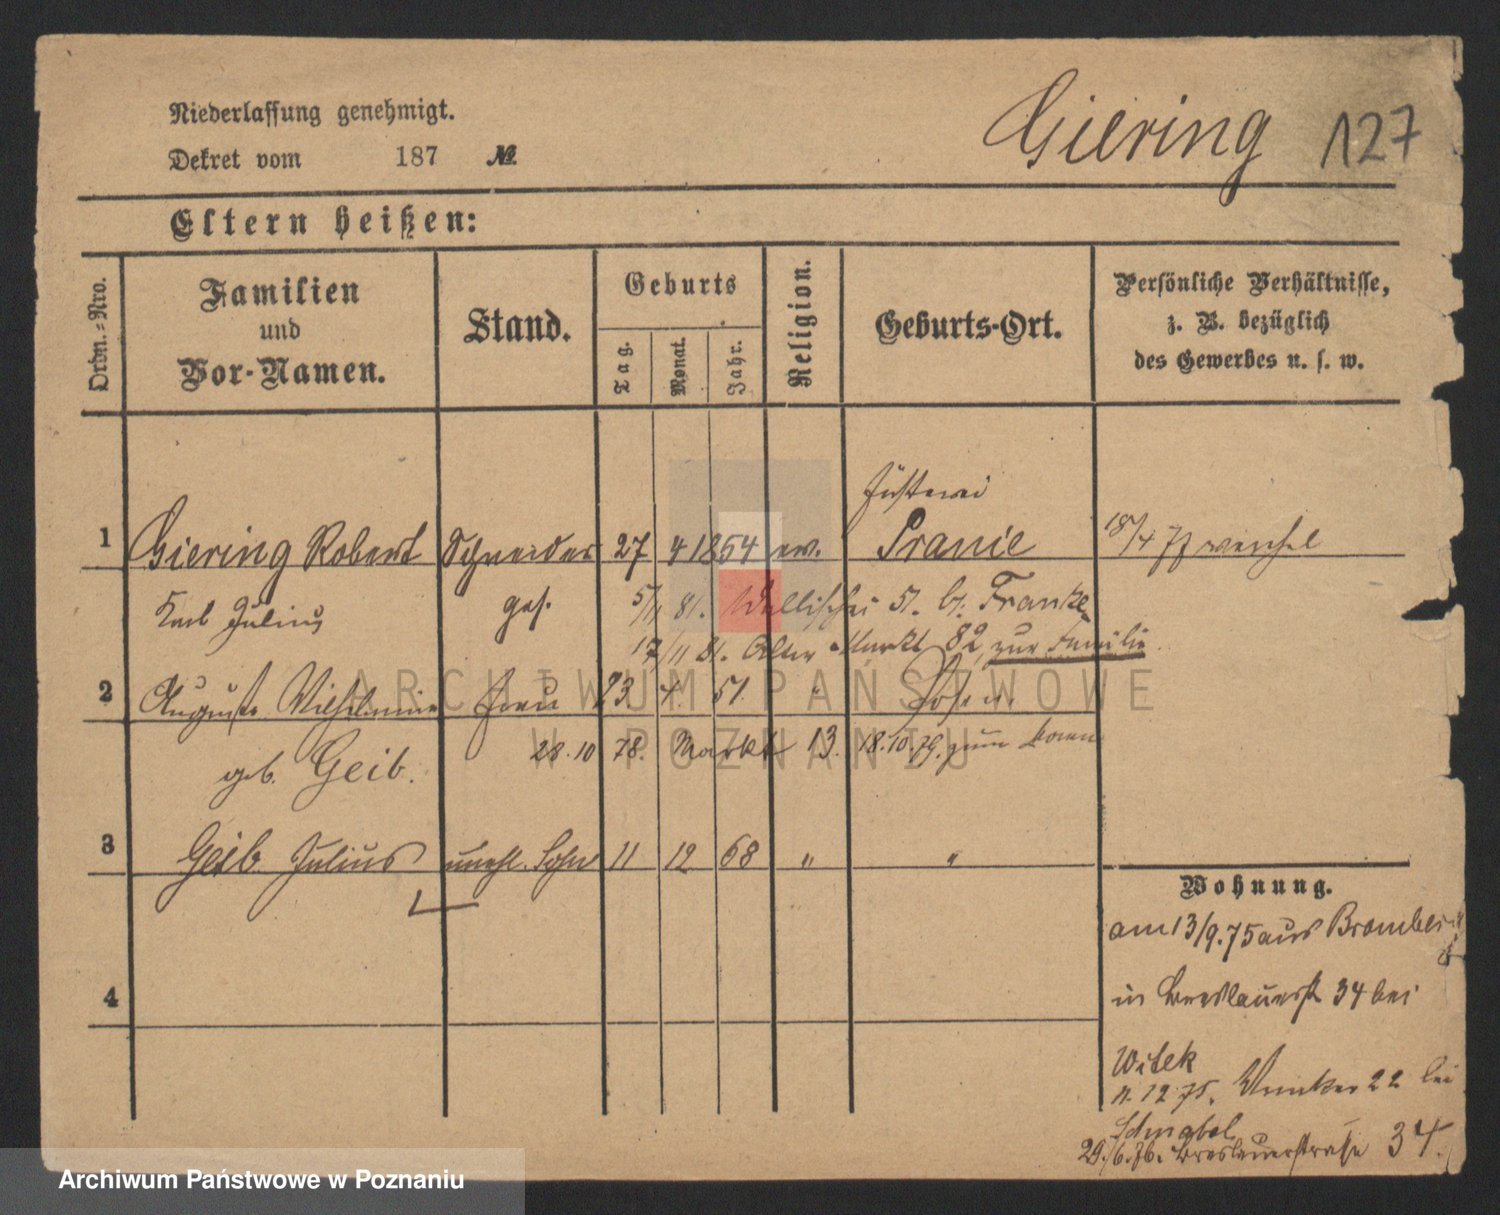 Niederlassung genehmigt.
Dekret vom 187 №
Giering 127
Eltern heißen:
Ordn.-Nro.
Familien und Vor-Namen.
Stand.
Geburts
Tag.
Monat.
Jahr.
Religion.
Geburts-Ort.
Persönliche Verhältnisse,
z. B. bezüglich
des Gewerbes u. s. w.
1 Giering Robert Schneider 27 4 1854 ev. Pranie
Karl Julius ges. 5/11 81. Wallischei 51. b. Franke
17/11 81. Alter Markt 82, zur Familie
2 Auguste Wilhelmine Frau 23 4. 51 " Posen
geb. Geib. 28.10 78. Markt 13. 18.10.79. zum
3 Geib Julius unehl. Sohn 11 12 68 " "
4
Wohnung.
am 13/9.75 aus Bromberg
in Breslauerst 34 bei
Witek
11.12 75. 22 bei
Schnabel
29./6.76. Breslauerstraße 34.
ARCHIWUM PAŃSTWOWE
W POZNANIU
Archiwum Państwowe w Poznaniu